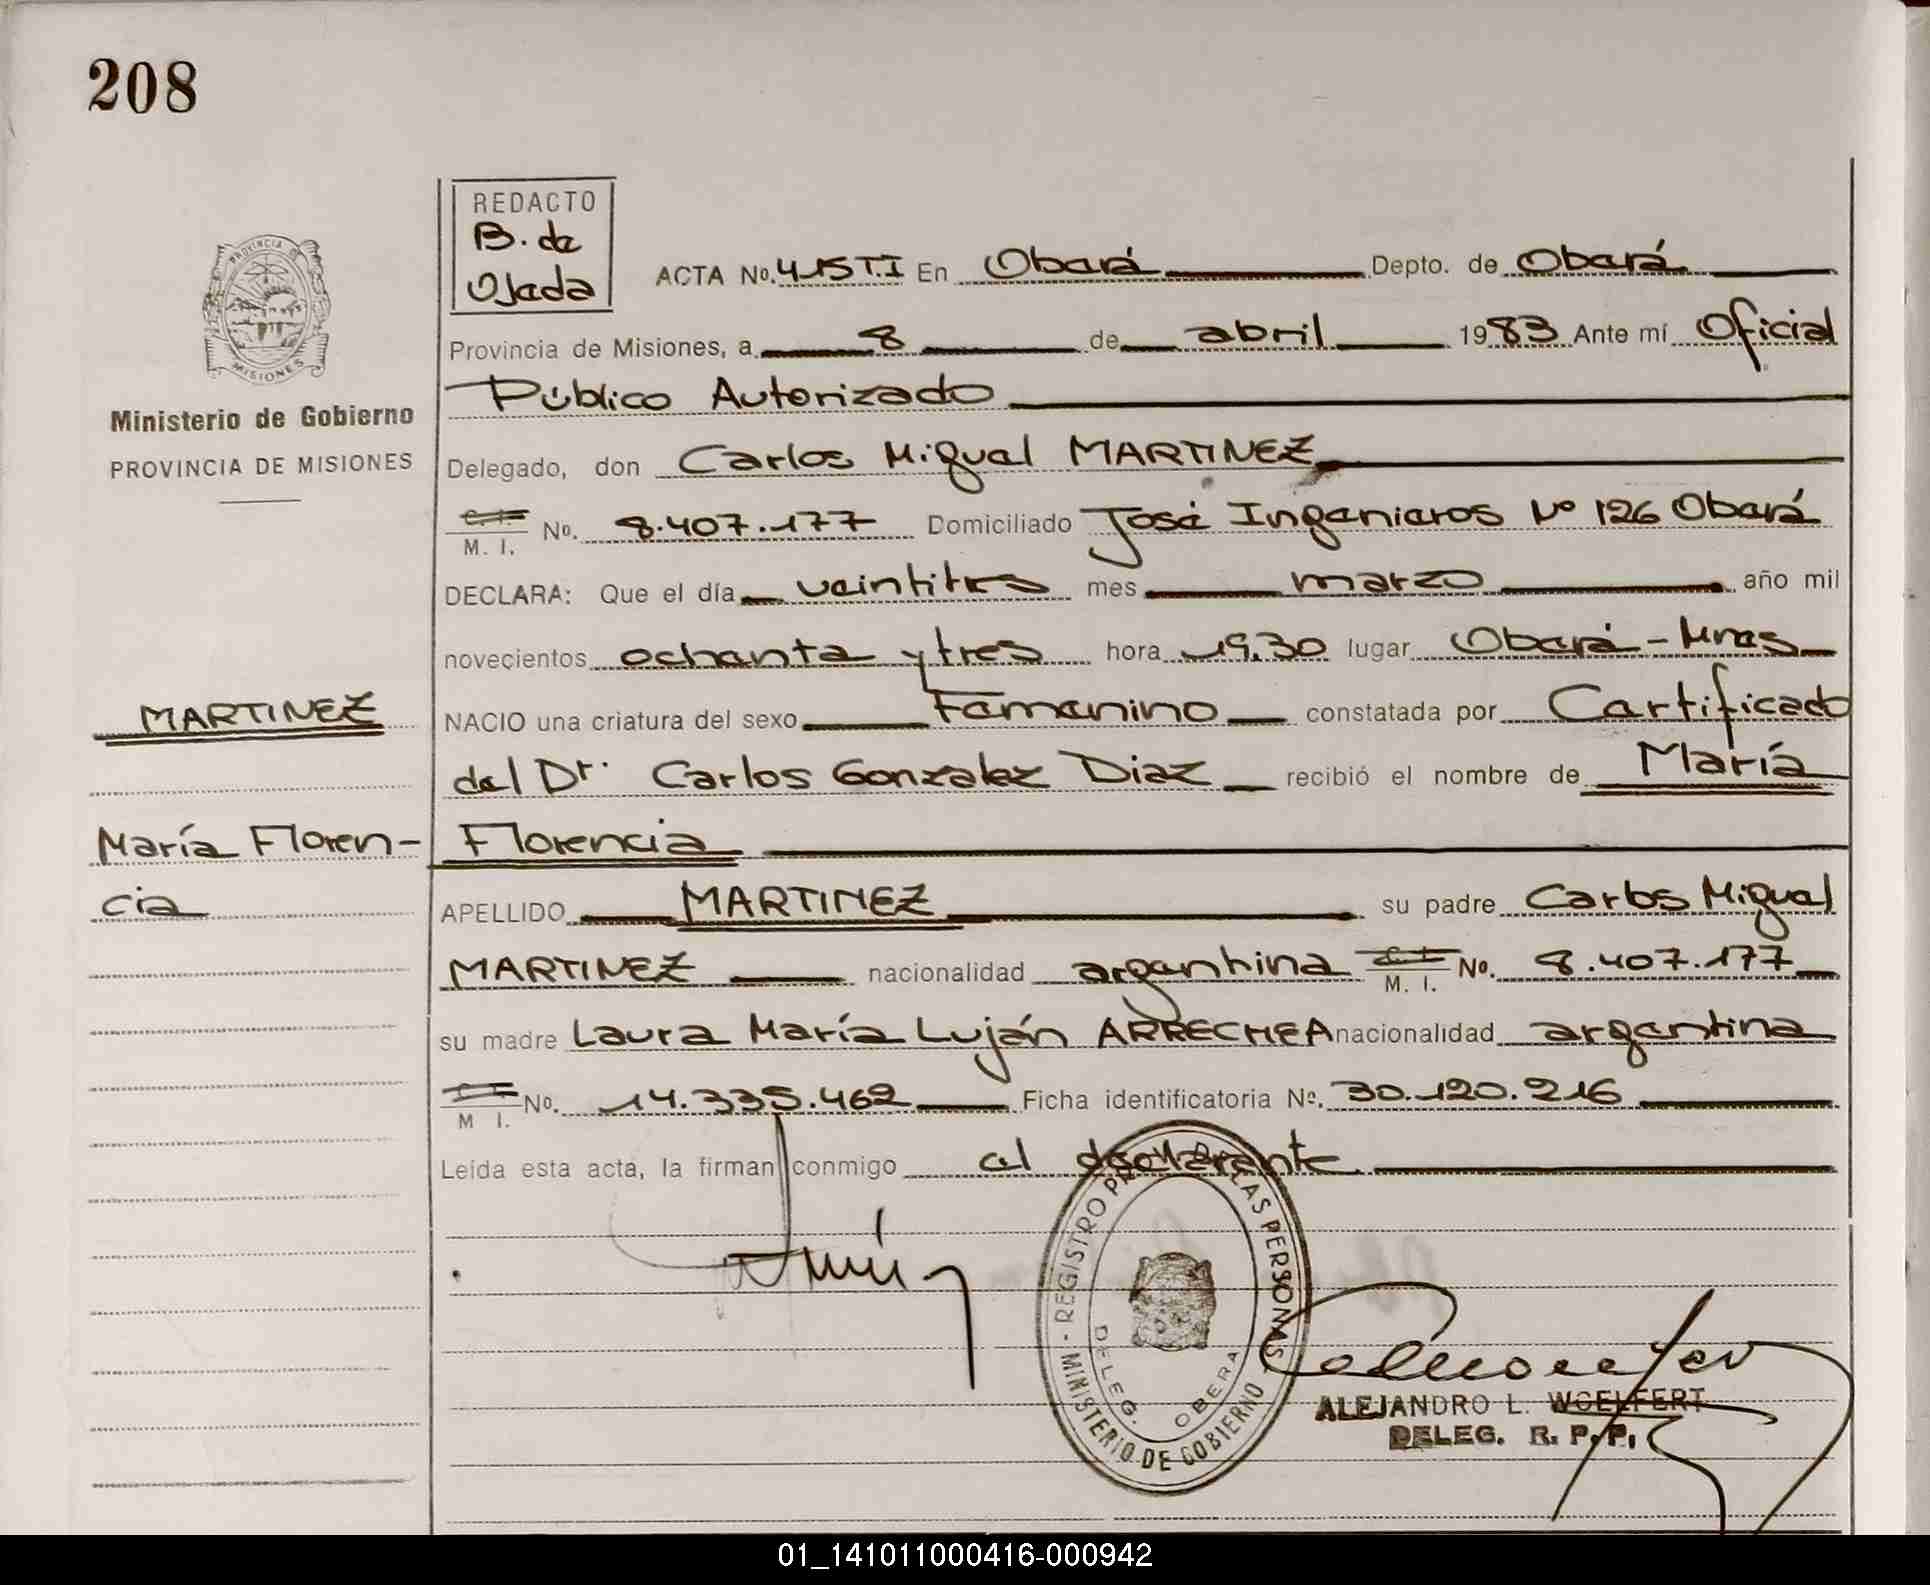 208
REDACTO
B. de
Ojeda
ACTA No. 415 T.I En Oberá Depto. de Oberá
Provincia de Misiones, a 8 de abril 1983 Ante mí Oficial
Público Autorizado
PROVINCIA DE
MISIONES
Ministerio de Gobierno
PROVINCIA DE MISIONES
Delegado, don Carlos Miguel MARTINEZ
C. I.
M. I. No. 8.407.177 Domiciliado José Ingenieros Nº 126 Oberá
DECLARA: Que el día veintitres mes marzo año mil
novecientos ochenta y tres hora 19,30 lugar Oberá - Mnes
MARTINEZ
NACIO una criatura del sexo Femenino constatada por Certificado
del Dr. Carlos Gonzalez Diaz recibió el nombre de María
María Floren-
cia
Florencia
APELLIDO MARTINEZ su padre Carlos Miguel
MARTINEZ nacionalidad argentina C. I. M. I. No. 8.407.177
su madre Laura María Luján ARRECHEA nacionalidad argentina
M I. No. 14.335.462 Ficha identificatoria Nº. 30.120.216
Leída esta acta, la firman conmigo el declarante
REGISTRO DE LAS PERSONAS
MINISTERIO DE GOBIERNO
DELEG. OBERA
ALEJANDRO L. WOELFERT
DELEG. R. P. P.
01_141011000416-000942